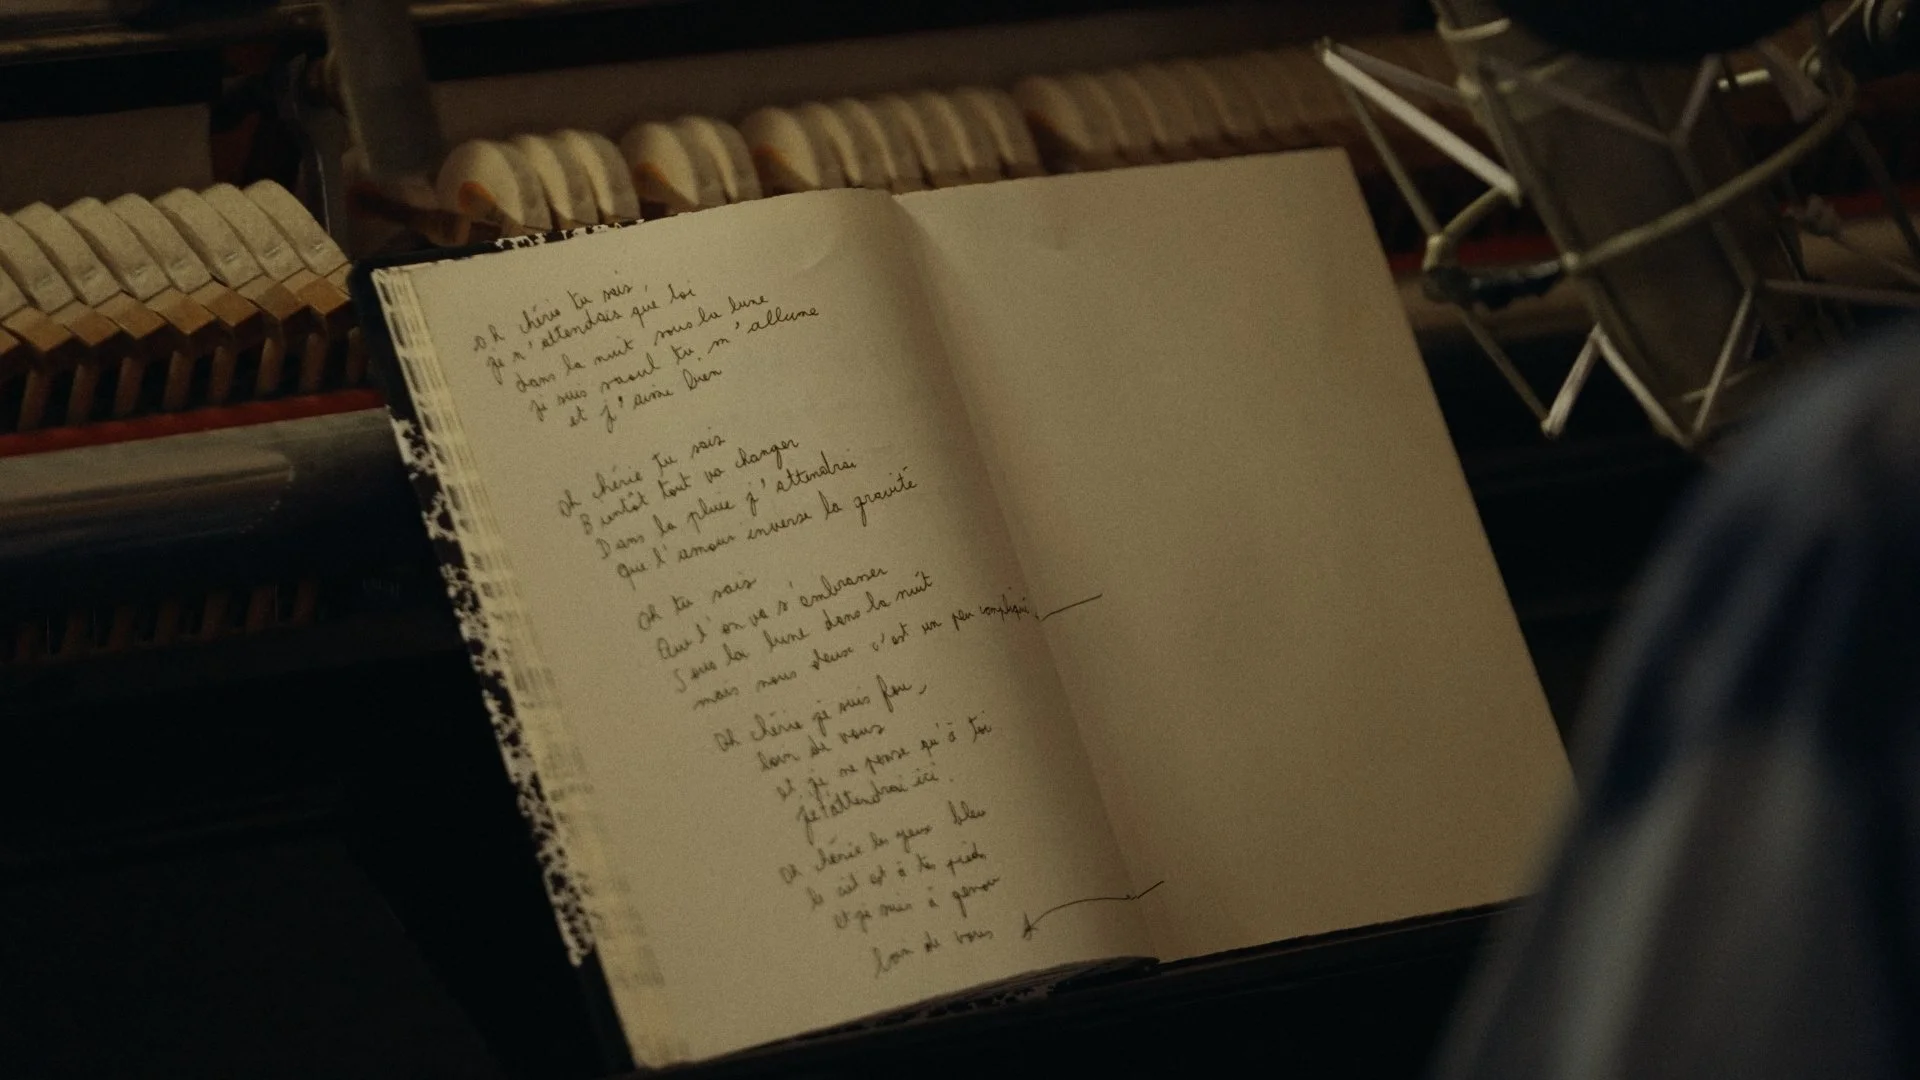 Oh chérie tu sais,
je n'attendais que toi
dans la nuit sous la lune
je suis saoul tu m'allume
et j'aime bien
Oh chérie tu sais
Bientôt tout va changer
Dans la pluie j'attendrai
que l'amour inverse la gravité
Oh tu sais
Que l'on va s'embrasser
Sous la lune dans la nuit
mais nous deux c'est un peu compliqué
Oh chérie je suis fou,
loin de vous
et je ne pense qu'à toi
je t'attendrai ici.
Oh chérie les yeux bleu
le ciel est à tes pieds
et je suis à genou
loin de vous